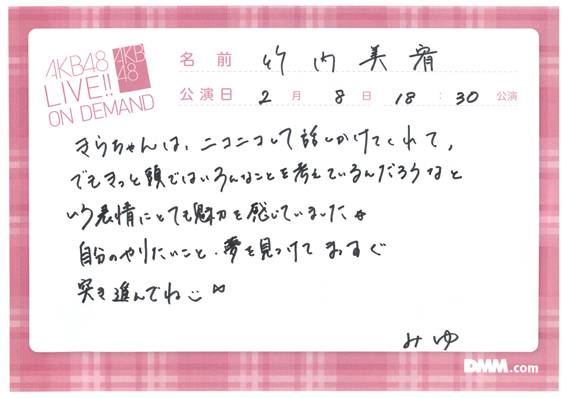 AKB48
LIVE!!
ON DEMAND
AKB
48
名前 竹内美宥
公演日 2月 8日 18:30 公演
きらちゃんは、ニコニコして話しかけてくれて、
でもきっと頭ではいろんなことを考えているんだろうなと
いう表情にとても魅力を感じていました
自分のやりたいこと・夢を見つけてまっすぐ
突き進んでね
みゆ
DMM.com